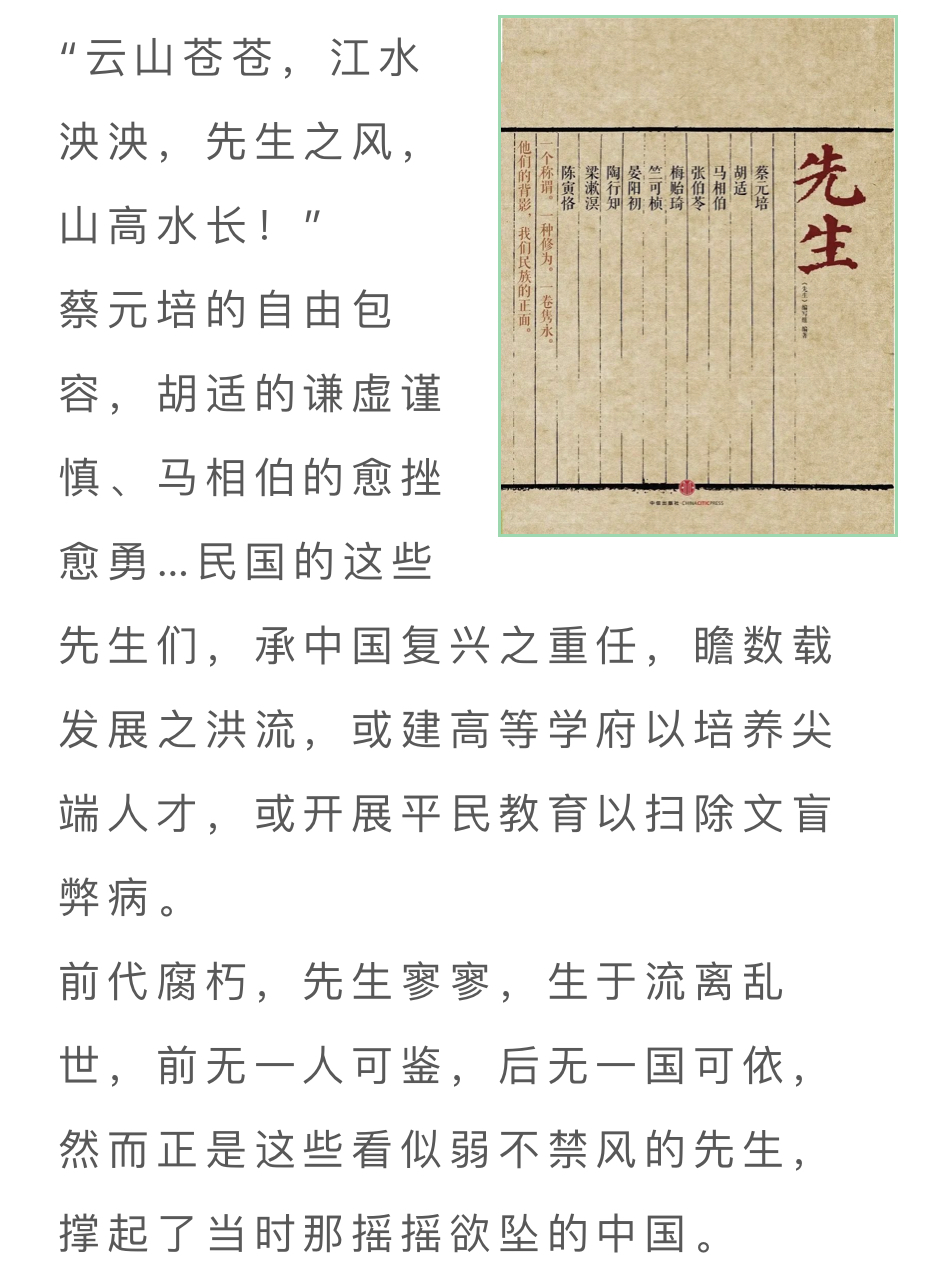 “云山苍苍，江水
泱泱，先生之风，
山高水长！”
蔡元培的自由包
容，胡适的谦虚谨
慎、马相伯的愈挫
愈勇…民国的这些
先生们，承中国复兴之重任，瞻数载
发展之洪流，或建高等学府以培养尖
端人才，或开展平民教育以扫除文盲
弊病。
前代腐朽，先生寥寥，生于流离乱
世，前无一人可鉴，后无一国可依，
然而正是这些看似弱不禁风的先生，
撑起了当时那摇摇欲坠的中国。
先生
《先生》编写组 编著
蔡元培
胡适
马相伯
张伯苓
梅贻琦
竺可桢
晏阳初
陶行知
梁漱溟
陈寅恪
一个称谓。一种修为。一卷隽永。
他们的背影，我们民族的正面。
中信出版社·CHINACITICPRESS